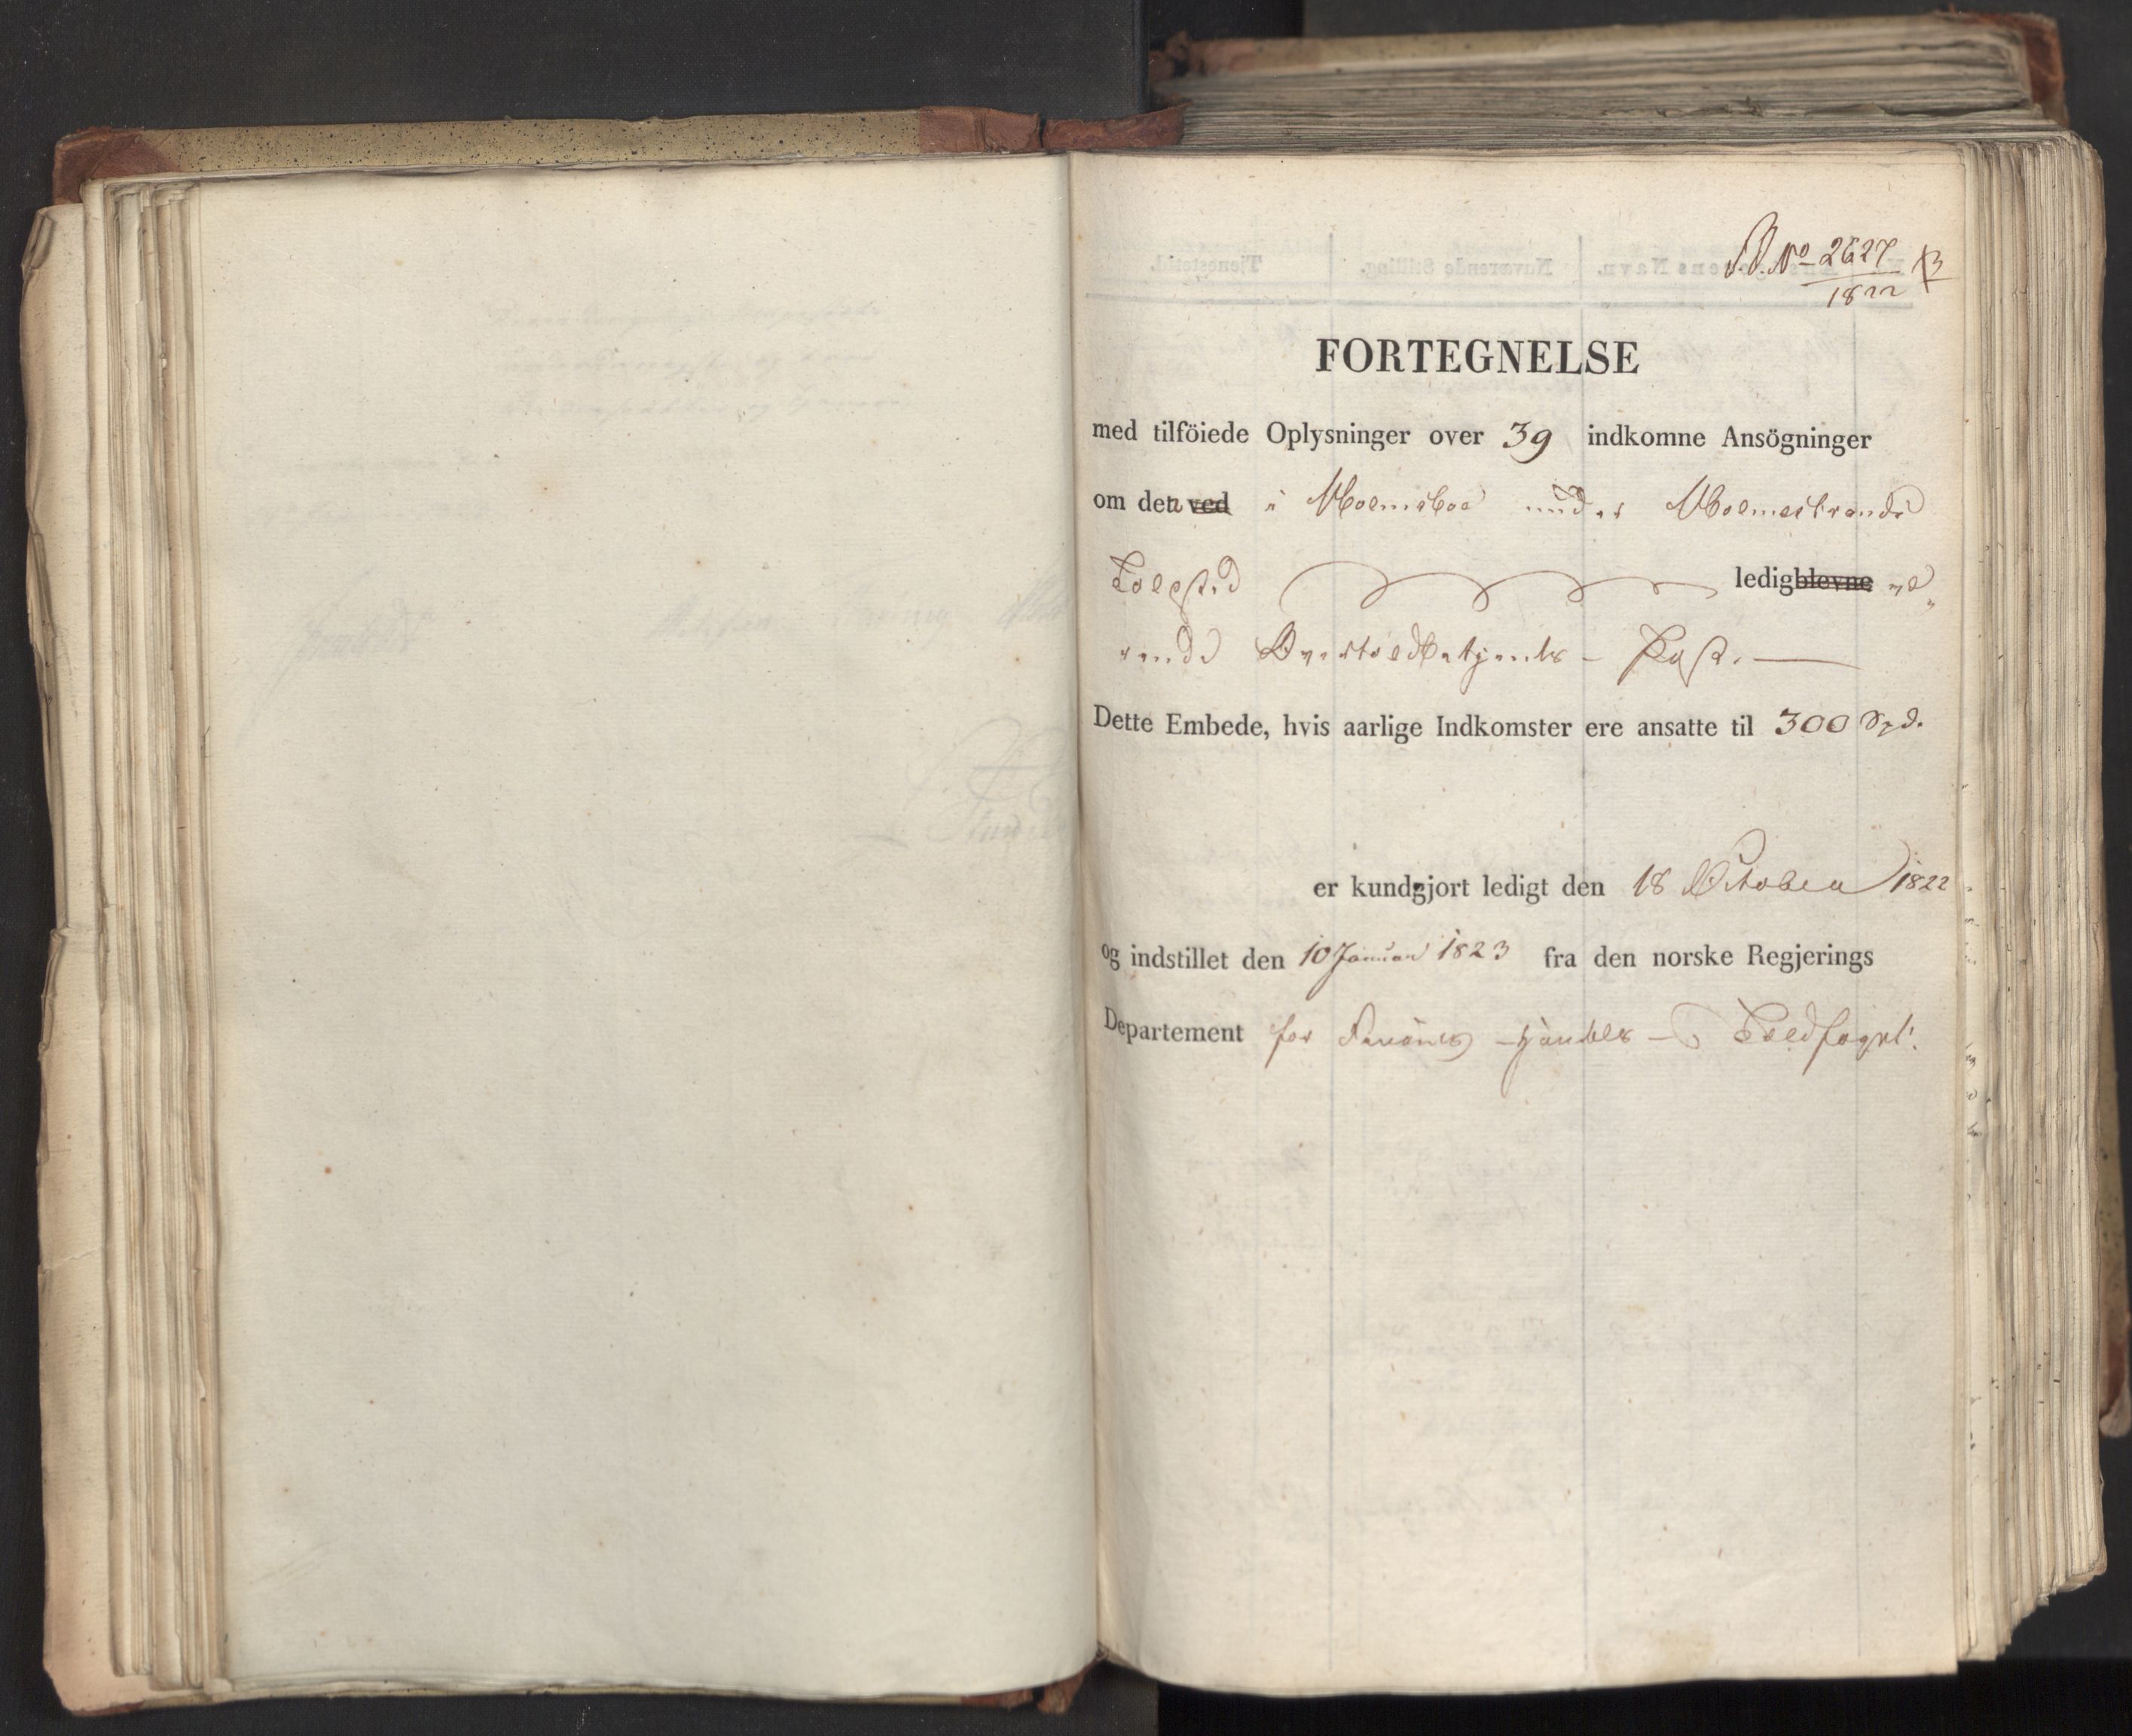 No 2627
1822
FORTEGNELSE
med tilföiede Oplysninger over 39 indkomne Ansögninger
om den ved i Holmsboe under Holmestrands
Toldsted ledigblevne væ„
rende Overtoldbetjents - Post. —
Dette Embede, hvis aarlige Indkomster ere ansatte til 300 Spd.
er kundgjort ledigt den 18 October 1822
og indstillet den 10 Januar 1823 fra den norske Regjerings
Departement for Finants - Handels - Toldfaget.